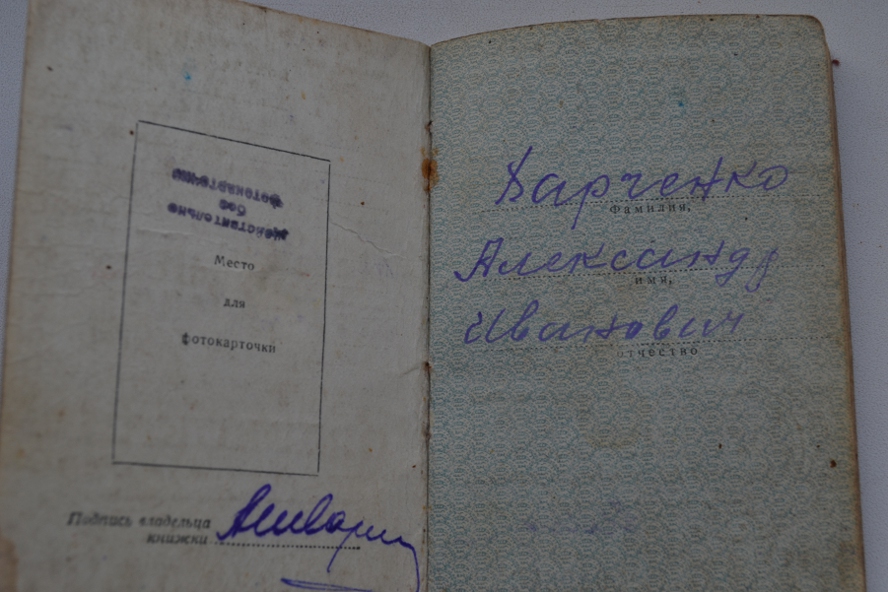 Действительно
без
фотокарточки
Место
для
фотокарточки
Подпись владельца
книжки
Варченко
Фамилия,
Александр
имя,
Иванович
отчество